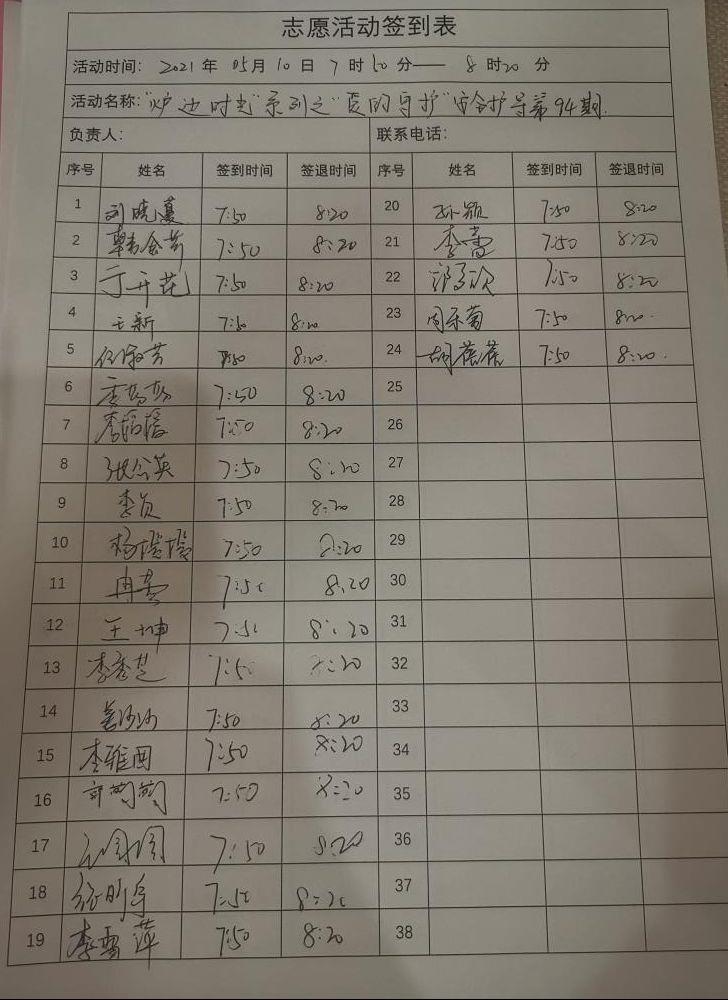 志愿活动签到表
活动时间: 2021 年 05月 10 日 7 时 50 分—— 8 时20 分
活动名称: "炉边时光"系列之"爱的守护"安全护导第94期.
负责人: 联系电话:
序号 姓名 签到时间 签退时间 序号 姓名 签到时间 签退时间
1 刘晓蔓 7:50 8:20 20 孙颖 7:50 8:20
2 韩金芳 7:50 8:20 21 李雪 7:50 8:20
3 于开花 7:50 8:20 22 7:50 8:20
4 王新 7:50 8:20 23 周乐菊 7:50 8:20.
5 任淑芳 7:50 8:20. 24 胡蓓蓓 7:50 8:20.
6 7:50 8:20 25
7 7:50 8:20 26
8 张公英 7:50 8:20 27
9 李贞 7:50 8:20 28
10 7:50 8:20 29
11 冉 7:50 8:20 30
12 王坤 7:50 8:20 31
13 李秀芝 7:50 8:20 32
14 姜沙沙 7:50 8:20 33
15 李雅囡 7:50 8:20 34
16 7:50 8:20 35
17 7:50 8:20 36
18 7:50 8:20 37
19 李雪萍 7:50 8:20 38